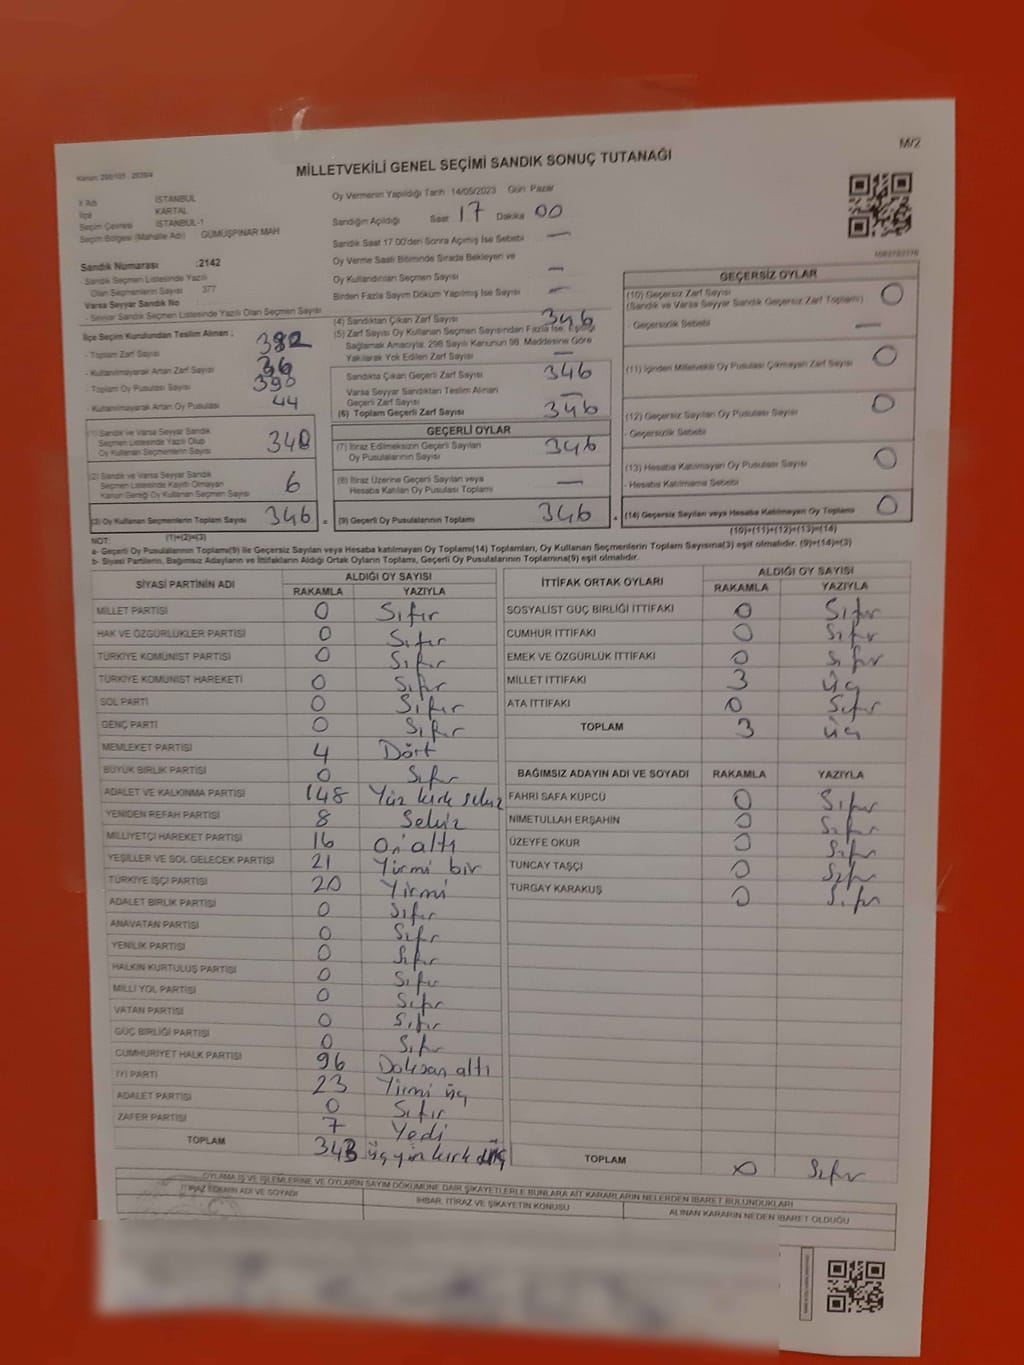 M/2
MİLLETVEKİLİ GENEL SEÇİMİ SANDIK SONUÇ TUTANAĞI
İl Adı İSTANBUL
İlçe KARTAL
Seçim Çevresi İSTANBUL-1
Seçim Bölgesi (Mahalle Adı) GÜMÜŞPINAR MAH
Sandık Numarası :2142
Sandık Seçmen Listesinde Yazılı
Olan Seçmenlerin Sayısı 377
Varsa Seyyar Sandık No
- Seyyar Sandık Seçmen Listesinde Yazılı Olan Seçmen Sayısı
Oy Vermenin Yapıldığı Tarih 14/05/2023 Gün: Pazar
Sandığın Açıldığı Saat 17 Dakika 00
Sandık Saat 17:00'den Sonra Açılmış İse Sebebi —
Oy Verme Saati Bitiminde Sırada Bekleyen ve
Oy Kullandırılan Seçmen Sayısı —
Birden Fazla Sayım Döküm Yapılmış İse Sayısı —
İlçe Seçim Kurulundan Teslim Alınan ;
- Toplam Zarf Sayısı 382
- Kullanılmayarak Artan Zarf Sayısı 36
- Toplam Oy Pusulası Sayısı 390
- Kullanılmayarak Artan Oy Pusulası 44
(1) Sandık ve Varsa Seyyar Sandık
Seçmen Listesinde Yazılı Olup
Oy Kullanan Seçmenlerin Sayısı 340
(2) Sandık ve Varsa Seyyar Sandık
Seçmen Listesinde Kayıtlı Olmayan
Kanun Gereği Oy Kullanan Seçmen Sayısı 6
(3) Oy Kullanan Seçmenlerin Toplam Sayısı 346 =
(1)+(2)=(3)
(4) Sandıktan Çıkan Zarf Sayısı 346
(5) Zarf Sayısı Oy Kullanan Seçmen Sayısından Fazla İse, Eşitliği
Sağlamak Amacıyla, 298 Sayılı Kanunun 98. Maddesine Göre
Yakılarak Yok Edilen Zarf Sayısı —
Sandıkta Çıkan Geçerli Zarf Sayısı 346
Varsa Seyyar Sandıktan Teslim Alınan
Geçerli Zarf Sayısı —
(6) Toplam Geçerli Zarf Sayısı 346
GEÇERLİ OYLAR
(7) İtiraz Edilmeksizin Geçerli Sayılan
Oy Pusulalarının Sayısı 346
(8) İtiraz Üzerine Geçerli Sayılan veya
Hesaba Katılan Oy Pusulası Toplamı —
(9) Geçerli Oy Pusulalarının Toplamı 346 +
GEÇERSİZ OYLAR
(10) Geçersiz Zarf Sayısı
(Sandık ve Varsa Seyyar Sandık Geçersiz Zarf Toplamı) 0
- Geçersizlik Sebebi —
(11) İçinden Milletvekili Oy Pusulası Çıkmayan Zarf Sayısı 0
(12) Geçersiz Sayılan Oy Pusulası Sayısı 0
- Geçersizlik Sebebi
(13) Hesaba Katılmayan Oy Pusulası Sayısı 0
- Hesaba Katılmama Sebebi
(14) Geçersiz Sayılan veya Hesaba Katılmayan Oy Toplamı 0
(10)+(11)+(12)+(13)=(14)
NOT:
a- Geçerli Oy Pusulalarının Toplamı(9) ile Geçersiz Sayılan veya Hesaba katılmayan Oy Toplamı(14) Toplamları, Oy Kullanan Seçmenlerin Toplam Sayısına(3) eşit olmalıdır. (9)+(14)=(3)
b- Siyasi Partilerin, Bağımsız Adayların ve İttifakların Aldığı Ortak Oyların Toplamı, Geçerli Oy Pusulalarının Toplamına(9) eşit olmalıdır.
SİYASİ PARTİNİN ADI ALDIĞI OY SAYISI
RAKAMLA YAZIYLA
MİLLET PARTİSİ 0 Sıfır
HAK VE ÖZGÜRLÜKLER PARTİSİ 0 Sıfır
TÜRKİYE KOMÜNİST PARTİSİ 0 Sıfır
TÜRKİYE KOMÜNİST HAREKETİ 0 Sıfır
SOL PARTİ 0 Sıfır
GENÇ PARTİ 0 Sıfır
MEMLEKET PARTİSİ 4 Dört
BÜYÜK BİRLİK PARTİSİ 0 Sıfır
ADALET VE KALKINMA PARTİSİ 148 Yüz kırk sekiz
YENİDEN REFAH PARTİSİ 8 Sekiz
MİLLİYETÇİ HAREKET PARTİSİ 16 On altı
YEŞİLLER VE SOL GELECEK PARTİSİ 21 Yirmi bir
TÜRKİYE İŞÇİ PARTİSİ 20 Yirmi
ADALET BİRLİK PARTİSİ 0 Sıfır
ANAVATAN PARTİSİ 0 Sıfır
YENİLİK PARTİSİ 0 Sıfır
HALKIN KURTULUŞ PARTİSİ 0 Sıfır
MİLLİ YOL PARTİSİ 0 Sıfır
VATAN PARTİSİ 0 Sıfır
GÜÇ BİRLİĞİ PARTİSİ 0 Sıfır
CUMHURİYET HALK PARTİSİ 96 Doksan altı
İYİ PARTİ 23 Yirmi üç
ADALET PARTİSİ 0 Sıfır
ZAFER PARTİSİ 7 Yedi
TOPLAM 343 üç yüz kırk üç
İTTİFAK ORTAK OYLARI ALDIĞI OY SAYISI
RAKAMLA YAZIYLA
SOSYALİST GÜÇ BİRLİĞİ İTTİFAKI 0 Sıfır
CUMHUR İTTİFAKI 0 Sıfır
EMEK VE ÖZGÜRLÜK İTTİFAKI 0 Sıfır
MİLLET İTTİFAKI 3 üç
ATA İTTİFAKI 0 Sıfır
TOPLAM 3 üç
BAĞIMSIZ ADAYIN ADI VE SOYADI RAKAMLA YAZIYLA
FAHRİ SAFA KÜPCÜ 0 Sıfır
NİMETULLAH ERŞAHİN 0 Sıfır
ÜZEYFE OKUR 0 Sıfır
TUNCAY TAŞÇI 0 Sıfır
TURGAY KARAKUŞ 0 Sıfır
TOPLAM 0 Sıfır
OYLAMA İŞ VE İŞLEMLERİNE VE OYLARIN SAYIM DÖKÜMÜNE DAİR ŞİKAYETLERLE BUNLARA AİT KARARLARIN NELERDEN İBARET BULUNDUKLARI
İTİRAZ EDENİN ADI VE SOYADI
İHBAR, İTİRAZ VE ŞİKAYETİN KONUSU
ALINAN KARARIN NEDEN İBARET OLDUĞU